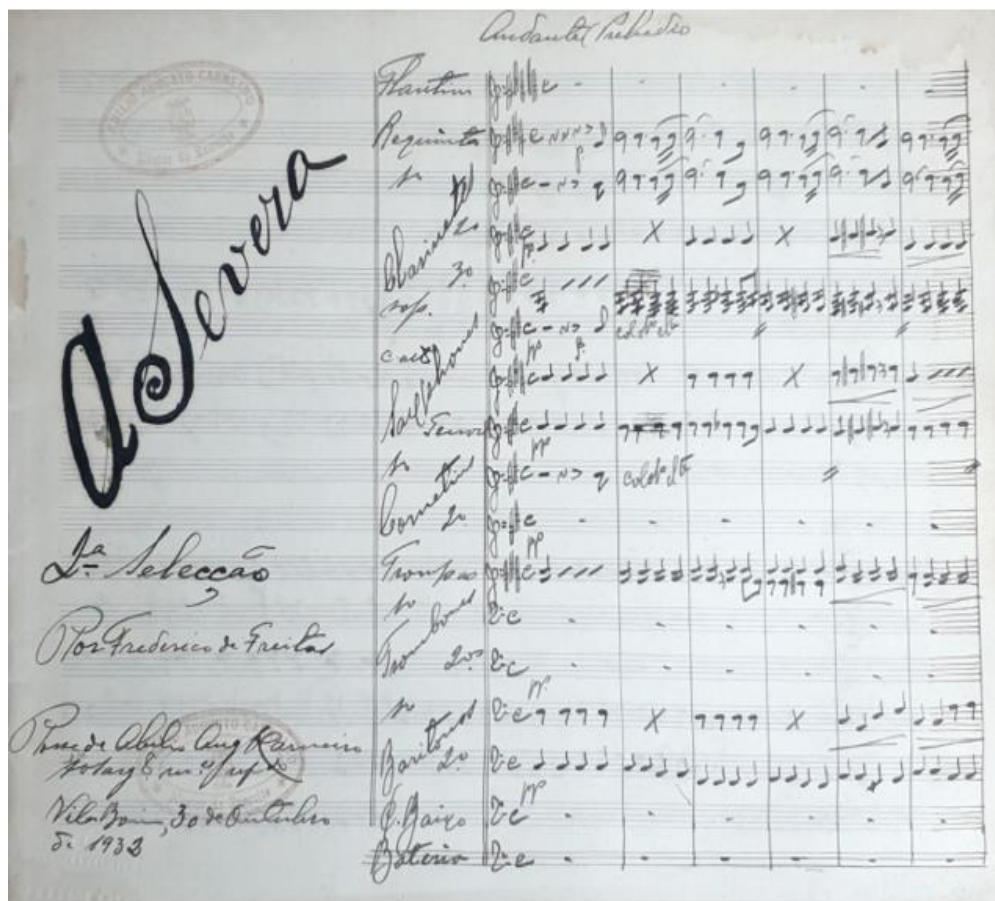 Andante (Preludio
ABILIO AUGUSTO CARNEIRO
A Severa
2ª Selecção
Por Frederico de Freitas
Posse de Abilio Aug Karneiro
Vila Boim, 30 de Outubro
de 1932
Flautim
Requinta
1o
Clarinetes
2o
3o
sop.
c. alt
Saxophones
Tenor
1o
Cornetins
2o
Trompas
1o
Trombones
2os
1o
Baritonos
2o
C. Baixo
Bateria
p.
p.
pp
p.
pp
pp
pp.
pp